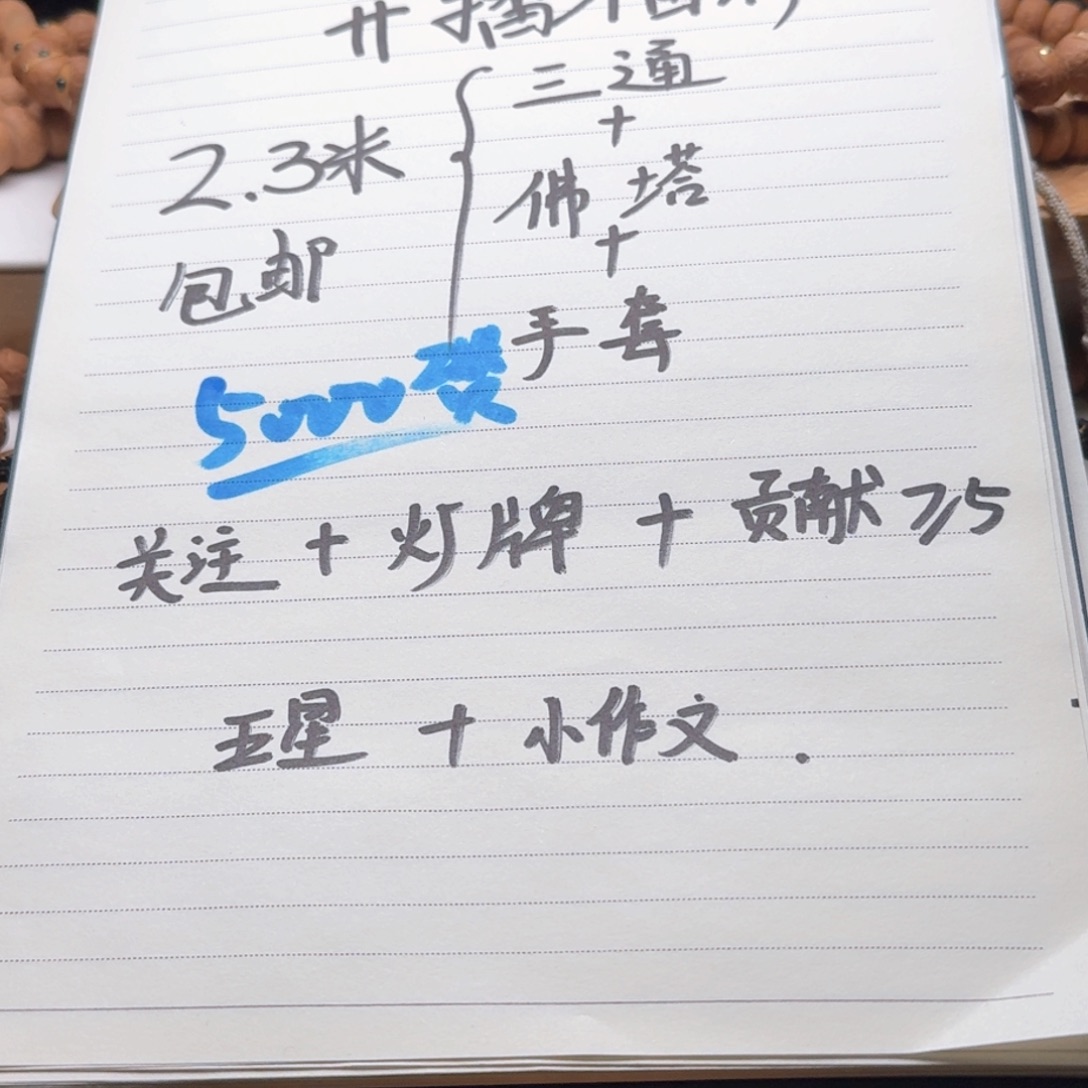 开播福利
2.3米
包邮
三通
+
佛塔
+
手套
5000赞
关注 + 灯牌 + 贡献≥5
五星 + 小作文.